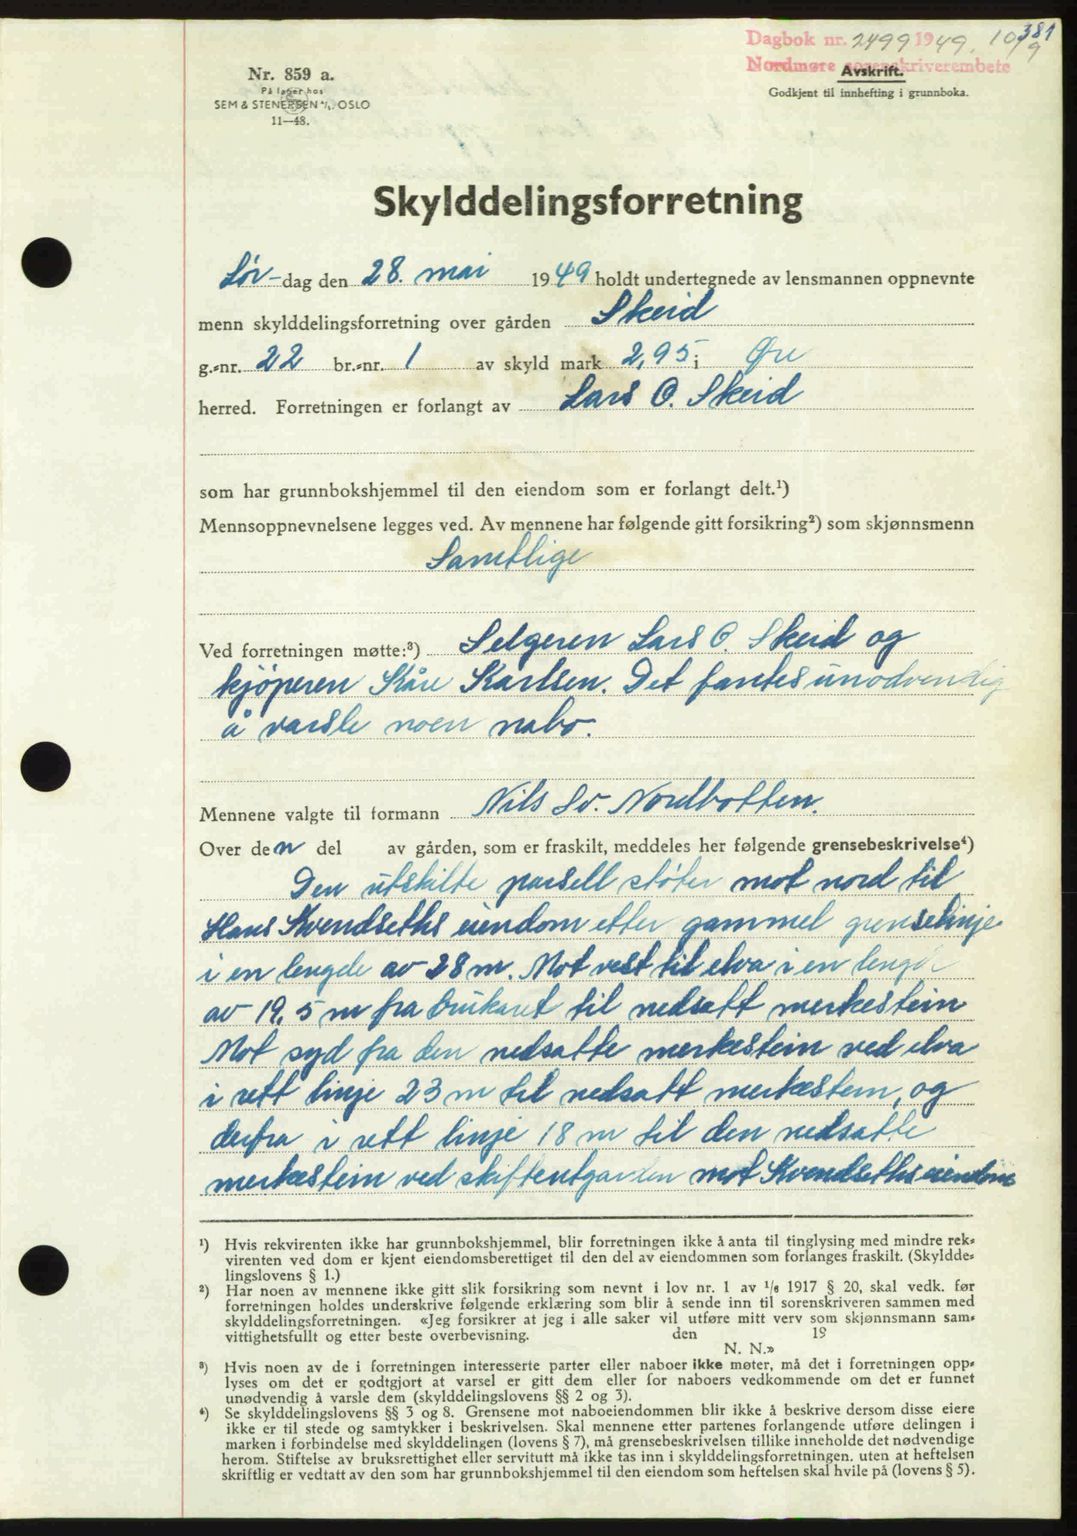 381
Dagbok nr. 2499 1949. 10/9
Nordmøre sorenskriverembete
Avskrift.
Godkjent til innhefting i grunnboka.
Nr. 859 a.
På lager hos
SEM & STENERSEN A/S, OSLO
11—48.
Skylddelingsforretning
Lør-dag den 28. mai 1949 holdt undertegnede av lensmannen oppnevnte
menn skylddelingsforretning over gården Skeid
g.-nr. 22 br.-nr. 1 av skyld mark 2,95 i Øre
herred. Forretningen er forlangt av Lars O. Skeid
som har grunnbokshjemmel til den eiendom som er forlangt delt.¹)
Mennsoppnevnelsene legges ved. Av mennene har følgende gitt forsikring²) som skjønnsmenn
Samtlige
Ved forretningen møtte:³) Selgeren Lars O. Skeid og
kjöperen Kåre Karlsen. Det fantes unödvendig
å varsle noen nabo.
Mennene valgte til formann Nils Sv. Nordbotten.
Over den del av gården, som er fraskilt, meddeles her følgende grensebeskrivelse⁴)
Den utskilte parsell støter mot nord til
Hans Kvendseths eiendom etter gammel grenselinje
i en lengde av 28 m. Mot vest til elva i en lengde
av 19,5 m fra brukaret til nedsatt merkestein
Mot syd fra den nedsatte merkestein ved elva
i rett linje 23 m til nedsatt merkestein, og
derfra i rett linje 18 m til den nedsatte
merkestein ved skifteutgarden mot Kvendseths eiendom
¹) Hvis rekvirenten ikke har grunnbokshjemmel, blir forretningen ikke å anta til tinglysing med mindre rek-
virenten ved dom er kjent eiendomsberettiget til den del av eiendommen som forlanges fraskilt. (Skyldde-
lingslovens § 1.)
²) Har noen av mennene ikke gitt slik forsikring som nevnt i lov nr. 1 av 1/6 1917 § 20, skal vedk. før
forretningen holdes underskrive følgende erklæring som blir å sende inn til sorenskriveren sammen med
skylddelingsforretningen. «Jeg forsikrer at jeg i alle saker vil utføre mitt verv som skjønnsmann sam-
vittighetsfullt og etter beste overbevisning. den 19
N. N.»
³) Hvis noen av de i forretningen interesserte parter eller naboer ikke møter, må det i forretningen opp-
lyses om det er godtgjort at varsel er gitt dem eller for naboers vedkommende om det er funnet
unødvendig å varsle dem (skylddelingslovens §§ 2 og 3).
⁴) Se skylddelingslovens §§ 3 og 8. Grensene mot naboeiendommen blir ikke å beskrive dersom disse eiere
ikke er til stede og samtykker i beskrivelsen. Skal mennene etter partenes forlangende utføre delingen i
marken i forbindelse med skylddelingen (lovens § 7), må grensebeskrivelsen tillike inneholde det nødvendige
herom. Stiftelse av bruksrettighet eller servitutt må ikke tas inn i skylddelingsforretningen. uten at heftelsen
skriftlig er vedtatt av den som har grunnbokshjemmel til den eiendom som heftelsen skal hvile på (lovens § 5).